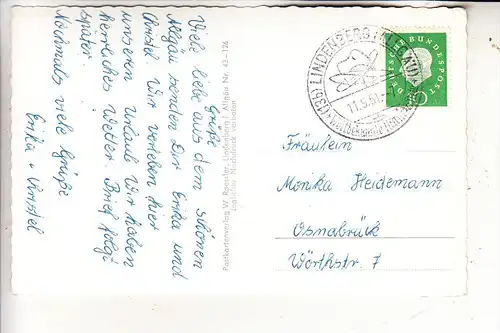 Viele liebe aus dem schönen
Grüße
Allgäu senden Dir Erika und
Christel. Wir verleben hier
unseren Urlaub. Wir haben
herrliches Wetter. Brief folgt
später.
Nochmals viele Grüße
Erika + Christel
Postkartenverlag W. Bressler, Lindenberg / Allgäu Nr. 43-126
Jeglicher Nachdruck verboten
(13b) LINDENBERG (ALLGÄU)
11.9.61
DEUTSCHE BUNDESPOST
10
Fräulein
Monika Heidemann
Osnabrück
Wörthstr. 7